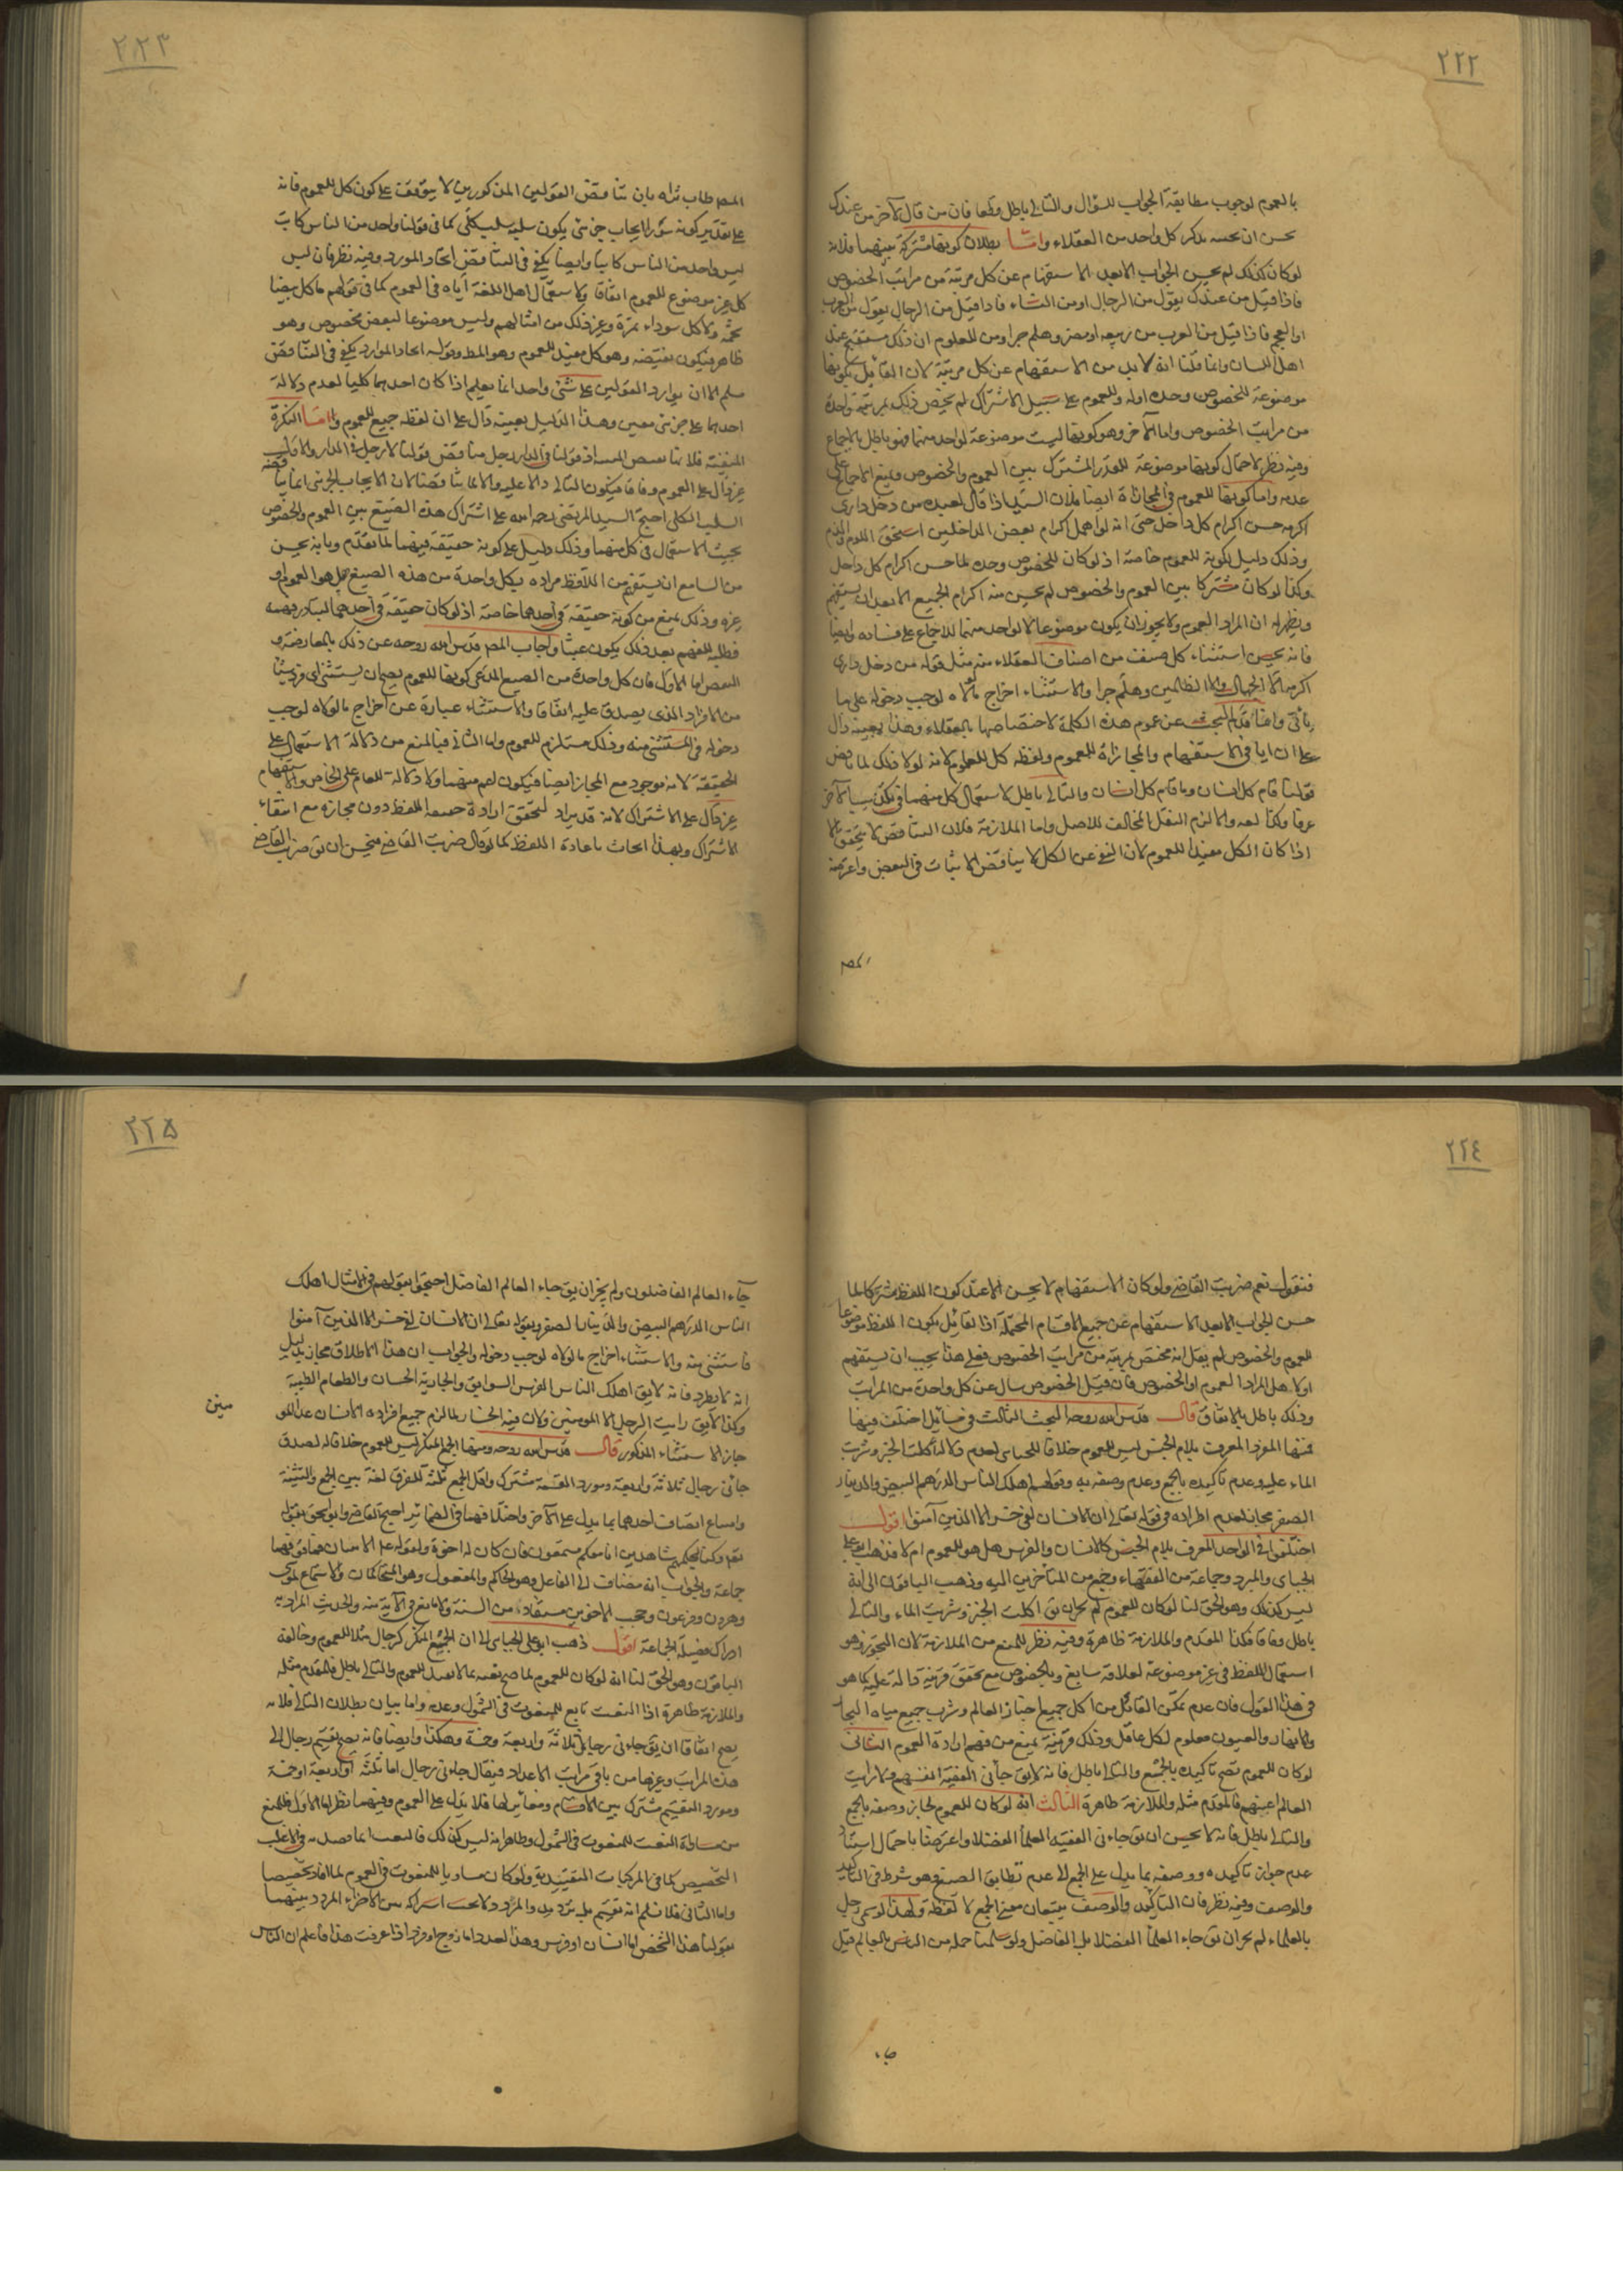 ٢٢٢
بالعموم لوجوب مطابقة الجواب للسؤال والتالى باطل قطعا فان من قال لآخر من عندك
حسن ان يجيبه بذكر كل واحد من العقلاء واما بطلان كونها مشتركة بينهما فلانه
لو كان كذلك لم يحسن الجواب الا بعد الاستفهام عن كل مرتبة من مراتب الخصوص
فاذا قيل من عندك يقول من الرجال او من النساء فاذا قيل من الرجال يقول من العرب
او العجم فاذا قيل من العرب من ربيعه او مضر وهلم جرا ومن المعلوم ان ذلك مستقبح عند
اهل اللسان وانما قلنا انه لا بد من الاستفهام عن كل مرتبة لان القائل بكونها
موضوعة للخصوص وحده اوله وللعموم على سبيل الاشتراك لم يخص ذلك بمرتبة واحدة
من مراتب الخصوص واما الآخر وهو كونها ليست موضوعة لواحد منهما فهو باطل بالاجماع
وفيه نظر لاحتمال كونها موضوعة للقدر المشترك بين العموم والخصوص ومنع الاجماع على
عدمه واما كونها للعموم فى المجازاة ايضا فلان السيد اذا قال لعبده من دخل دارى
اكرمه حسن اكرام كل داخل حتى انه لو اهمل اكرام بعض الداخلين استحق اللوم والذم
وذلك دليل لكونه للعموم خاصة اذ لو كان للخصوص وحده لما حسن اكرام كل داخل
وكذا لو كان مشتركا بين العموم والخصوص لم يحسن منه اكرام الجميع الا بعد ان يستفهم
ويظهر له ان المراد العموم ولا يجوز ان يكون موضوعا لا لواحد منهما للاجماع على فساده وايضا
فانه يحسن استثناء كل صنف من اصناف العقلاء منه مثل قوله من دخل دارى
اكرمه الا الجهال والا الظالمين وهلم جرا والاستثناء اخراج ما لولاه لوجب دخوله على ما
يأتى وانما قدم البحث عن عموم هذه الكلمة لاختصاصها بالعقلاء وهذا بعينه دال
على ان ايا فى الاستفهام والمجازاة للعموم ولفظه كل للعموم لانه لولا ذلك لما ناقض
قولنا قام كل انسان وما قام كل انسان والتالى باطل لاستعمال كل منهما فى تكذيب الآخر
عرفا وكذا لغه والا لزم النقل المخالف للاصل واما الملازمة فلان التناقض لا يتحقق الا
اذا كان الكل مفيدا للعموم لان النفى عن الكل لا يناقض الاثبات فى البعض واعترضه
المص
٢٢٣
المص طاب ثراه بان تناقض القولين المذكورين لا يتوقف على كون كل للعموم فانه
على تقدير كونه سور ايجاب جزئى يكون سلبه سلب كلى كما فى قولنا واحد من الناس كاتب
ليس واحد من الناس كاتبا وايضا يكفى فى التناقض اتحاد المورد وفيه نظر فان ليس
كل غير موضوع للعموم اتفاقا ولاستعمال اهل اللغة اياه فى العموم كما فى قولهم ما كل بيضا
شحمة ولا كل سوداء تمرة وغير ذلك من امثالهم وليس موضوعا لبعض مخصوص وهو
ظاهر فيكون نقيضه وهو كل مفيد للعموم وهو المط وقوله اتحاد الموارد يكفى فى التناقض
مسلم الا ان توارد القولين على شئ واحد انما يعلم اذا كان احدهما كليا لعدم دلالة
احدهما على جزئى معين وهذا الدليل بعينه دال على ان لفظه جميع للعموم واما النكرة
المنفية فلانها نقيض المثبت اذ قولنا فى الدار رجل مناقض قولنا لا رجل فى الدار والاول
غير دال على العموم وفاقا فيكون التالى دالا عليه والا لما تناقضتا لان الايجاب الجزئى انما يناقضه
السلب الكلى احتج السيد المرتضى رحمه الله على اشتراك هذه الصيغ بين العموم والخصوص
بحيث الاستعمال فى كل منهما وذلك دليل على كونه حقيقة فيهما لما تقدم وبانه يحسن
من السامع ان يستفهم من اللافظ مراده بكل واحدة من هذه الصيغ هل هو العموم او
غيره وذلك يمنع من كونه حقيقة فى احدهما خاصة اذ لو كان حقيقة فى احدهما لتبادر فهمه
فطلبه للفهم بعد ذلك يكون عبثا واجاب المص قدس الله روحه عن ذلك بالمعارضة و
النقض اما الاول فان كل واحدة من الصيغ المدعى كونها للعموم يصح ان يستثنى اى فرد شئنا
من الافراد الذى يصدق عليه اتفاقا والاستثناء عبارة عن اخراج ما لولاه لوجب
دخوله فى المستثنى منه وذلك مستلزم للعموم واما الثانى فبالمنع من دلالة الاستعمال على
الحقيقة لانه موجود مع المجاز ايضا فيكون اعم منهما ولا دلالة للعام على الخاص والاستفهام
غير دال على الاشتراك لانه قد يراد لتحقق ارادة حقيقة اللفظ دون مجازه مع انتفاء
الاشتراك ولهذا يجاب باعادة اللفظ كما لو قال ضربت القاضى فيحسن ان يق ضربت القاضى
٢٢٤
فنقول نعم ضربت القاضى ولو كان الاستفهام لا يحسن الا عند كون اللفظ مشتركا لما
حسن الجواب الا بعد الاستفهام عن جميع الاقسام المحتملة اذ القائل بكون اللفظ موضوعا
للعموم والخصوص لم يقل انه مختص بمرتبة من مراتب الخصوص فعلى هذا يجب ان يستفهم
اولا هل المراد العموم او الخصوص فان قيل الخصوص سال عن كل واحدة من المراتب
وذلك باطل بالاتفاق قال قدس الله روحه البحث الثالث فى مسائل اختلف فيها
فمنها المفرد المعرف بلام الجنس ليس للعموم خلافا للجبائى لعدم دلالة اكلت الخبز وشربت
الماء عليه وعدم تاكيده بالجمع وعدم وصفه به وقولهم اهلك الناس الدرهم البيض والدينار
الصفر مجاز لعدم اطراده فى قوله تعالى ان الانسان لفى خسر الا الذين آمنوا اقول
اختلفوا فى الواحد المعرف بلام الجنس كالانسان والفرس هل هو للعموم ام لا فذهب ابو على
الجبائى والمبرد وجماعة من الفقهاء وجمع من المتأخرين اليه وذهب الباقون الى انه
ليس كذلك وهو الحق لنا لو كان للعموم لم يجز ان يق اكلت الخبز وشربت الماء والتالى
باطل وفاقا فكذا المقدم والملازمة ظاهرة وفيه نظر للمنع من الملازمة لان التجوز وهو
استعمال اللفظ فى غير موضوعة لعلاقة سايغ وبالخصوص مع تحقق قرينة دالة عليه كما هو
فى هذا القول فان عدم تمكن القائل من اكل جميع اخباز العالم وشرب جميع مياه البحار
والانهار والعيون معلوم لكل عاقل وذلك قرينة يمنع من فهم ارادة العموم الثانى
لو كان للعموم لصح تاكيده بالجمع والتالى باطل فانه لا يق جائنى الفقيه انفسهم ولا رايت
العالم اعينهم فالمقدم مثله والملازمة ظاهرة الثالث انه لو كان للعموم لجاز وصفه بالجمع
والتالى باطل فانه لا يحسن ان يق جاءنى الفقيه العلماء الفضلا واعترضنا باحتمال استناد
عدم جواز تاكيده ووصفه بما يدل على الجمع الى عدم تطابق الصيغ وهو شرط فى التاكيد
والوصف وفيه نظر فان التاكيد والوصف يتبعان معنى الجمع لا لفظه ولهذا لو سمى رجل
بالعلماء لم يجز ان يق جاء العلماء الفضلا بل الفاضل ولو سلمنا حمله من الناس بالعالم قيل
جاء
٢٢٥
جآء العالم الفاضلون ولم يجز ان يق جاء العالم الفاضل احتجوا بقولهم فى الامثال اهلك
الناس الدرهم البيض والدينار الصفر وبقوله تعالى ان الانسان لفى خسر الا الذين آمنوا
فاستثنى منه والاستثناء اخراج ما لولاه لوجب دخوله والجواب ان هذا الاطلاق مجاز بدليل
انه لا يطرد فانه لا يق اهلك الناس الفرس السوابق والجارية الحسان والطعام الطيبة
وكذا لا يق رايت الرجل الا المومنين ولان فيه الخسار لما لزم جميع افراده الانسان عدا المومنين
جاز الاستثناء المذكور قال قدس الله روحه ومنها الجمع المنكر ليس للعموم خلافا له لصدق
جائنى رجال ثلاثة واربعة ومورد القسمة مشترك واقل الجمع ثلثة للفرق لغة بين الجمع والتثنية
وامتناع اتصاف احدهما بما يدل على الآخر واختلافهما فى الضمائر احتج القاضى وابو اسحق بقوله
تعالى وكنا لحكمهم شاهدين انا معكم مستمعون فان كان له اخوة ولقوله ع الاثنان فما فوقهما
جماعة والجواب انه مضاف الى الفاعل وهو الحاكم والمفعول وهو المتحاكمان والاستماع لموسى
وهرون وفرعون وحجب الاخوين مستفاد من السنة ولا مانع فى الآية منه والحديث المراد به
ادراك فضيلة الجماعة اقول ذهب ابو على الجبائى الى ان الجمع المنكر كرجال مثلا للعموم وخالفه
الباقون وهو الحق لنا انه لو كان للعموم لما صح نعته بما لا يفيد العموم والتالى باطل فالمقدم مثله
والملازمة ظاهرة اذا النعت تابع للمنعوت فى الشمول وعدمه واما بيان بطلان التالى فلانه
يصح اتفاقا ان يق جاءنى رجال ثلاثة واربعة وخمسة وهكذا وايضا فانه يصح تقسيم رجال الى
هذه المراتب وغيرها من باقى مراتب الاعداد فيقال جاءنى رجال اما ثلثة او اربعة او خمسة
ومورد التقسيم مشترك بين الاقسام ومغاير لها فلا يدل على العموم وفيهما نظر اما الاول فللمنع
من مساواة النعت للمنعوت فى الشمول وظاهر انه ليس كذلك فالنعت انما قصد به فى الاغلب
التخصيص كما فى المركبات التقييدية ولو كان مساويا للمنعوت فى العموم لما افاد تخصيصا
واما الثانى فلا نسلم انه تقسيم بل ترديد والمردد لا يجب اشتراكه بين الاجزاء المردد بينهما
كقولنا هذا الشخص اما انسان او فرس وهذا العدد اما زوج او فرد اذا عرفت هذا فاعلم ان الناس